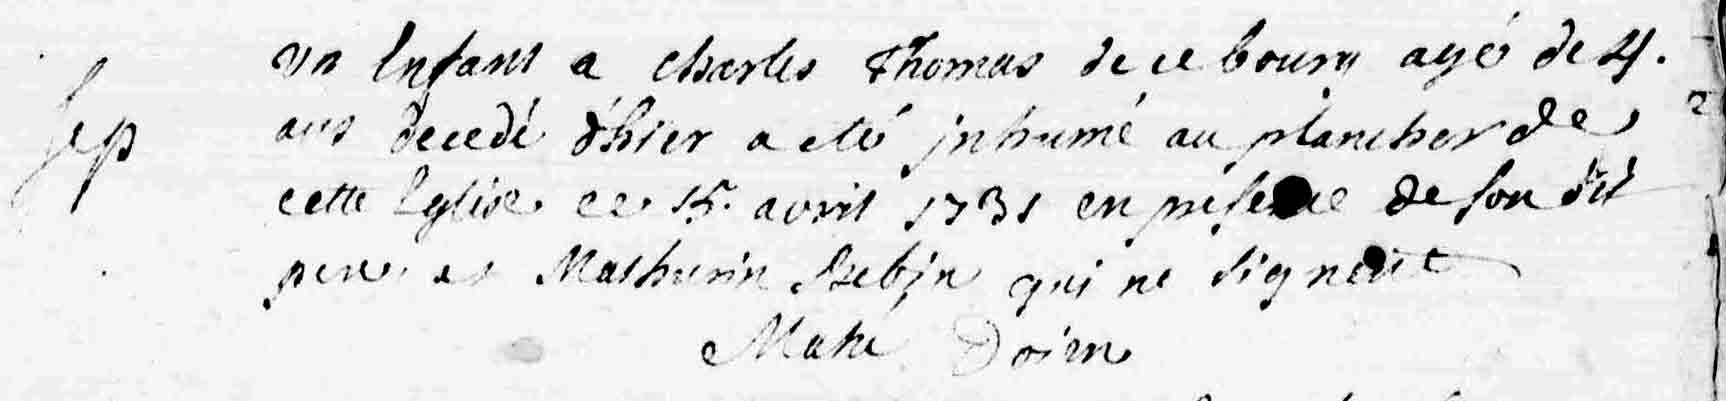 un Enfant a charles Thomas de ce bourg agé de 4.
Sep ans decedé d'hier a eté jnhumé au plancher de
cette Eglise ce 15. avril 1731 en presence de son dit
pere et Mathurin qui ne signent
Mahé Doien